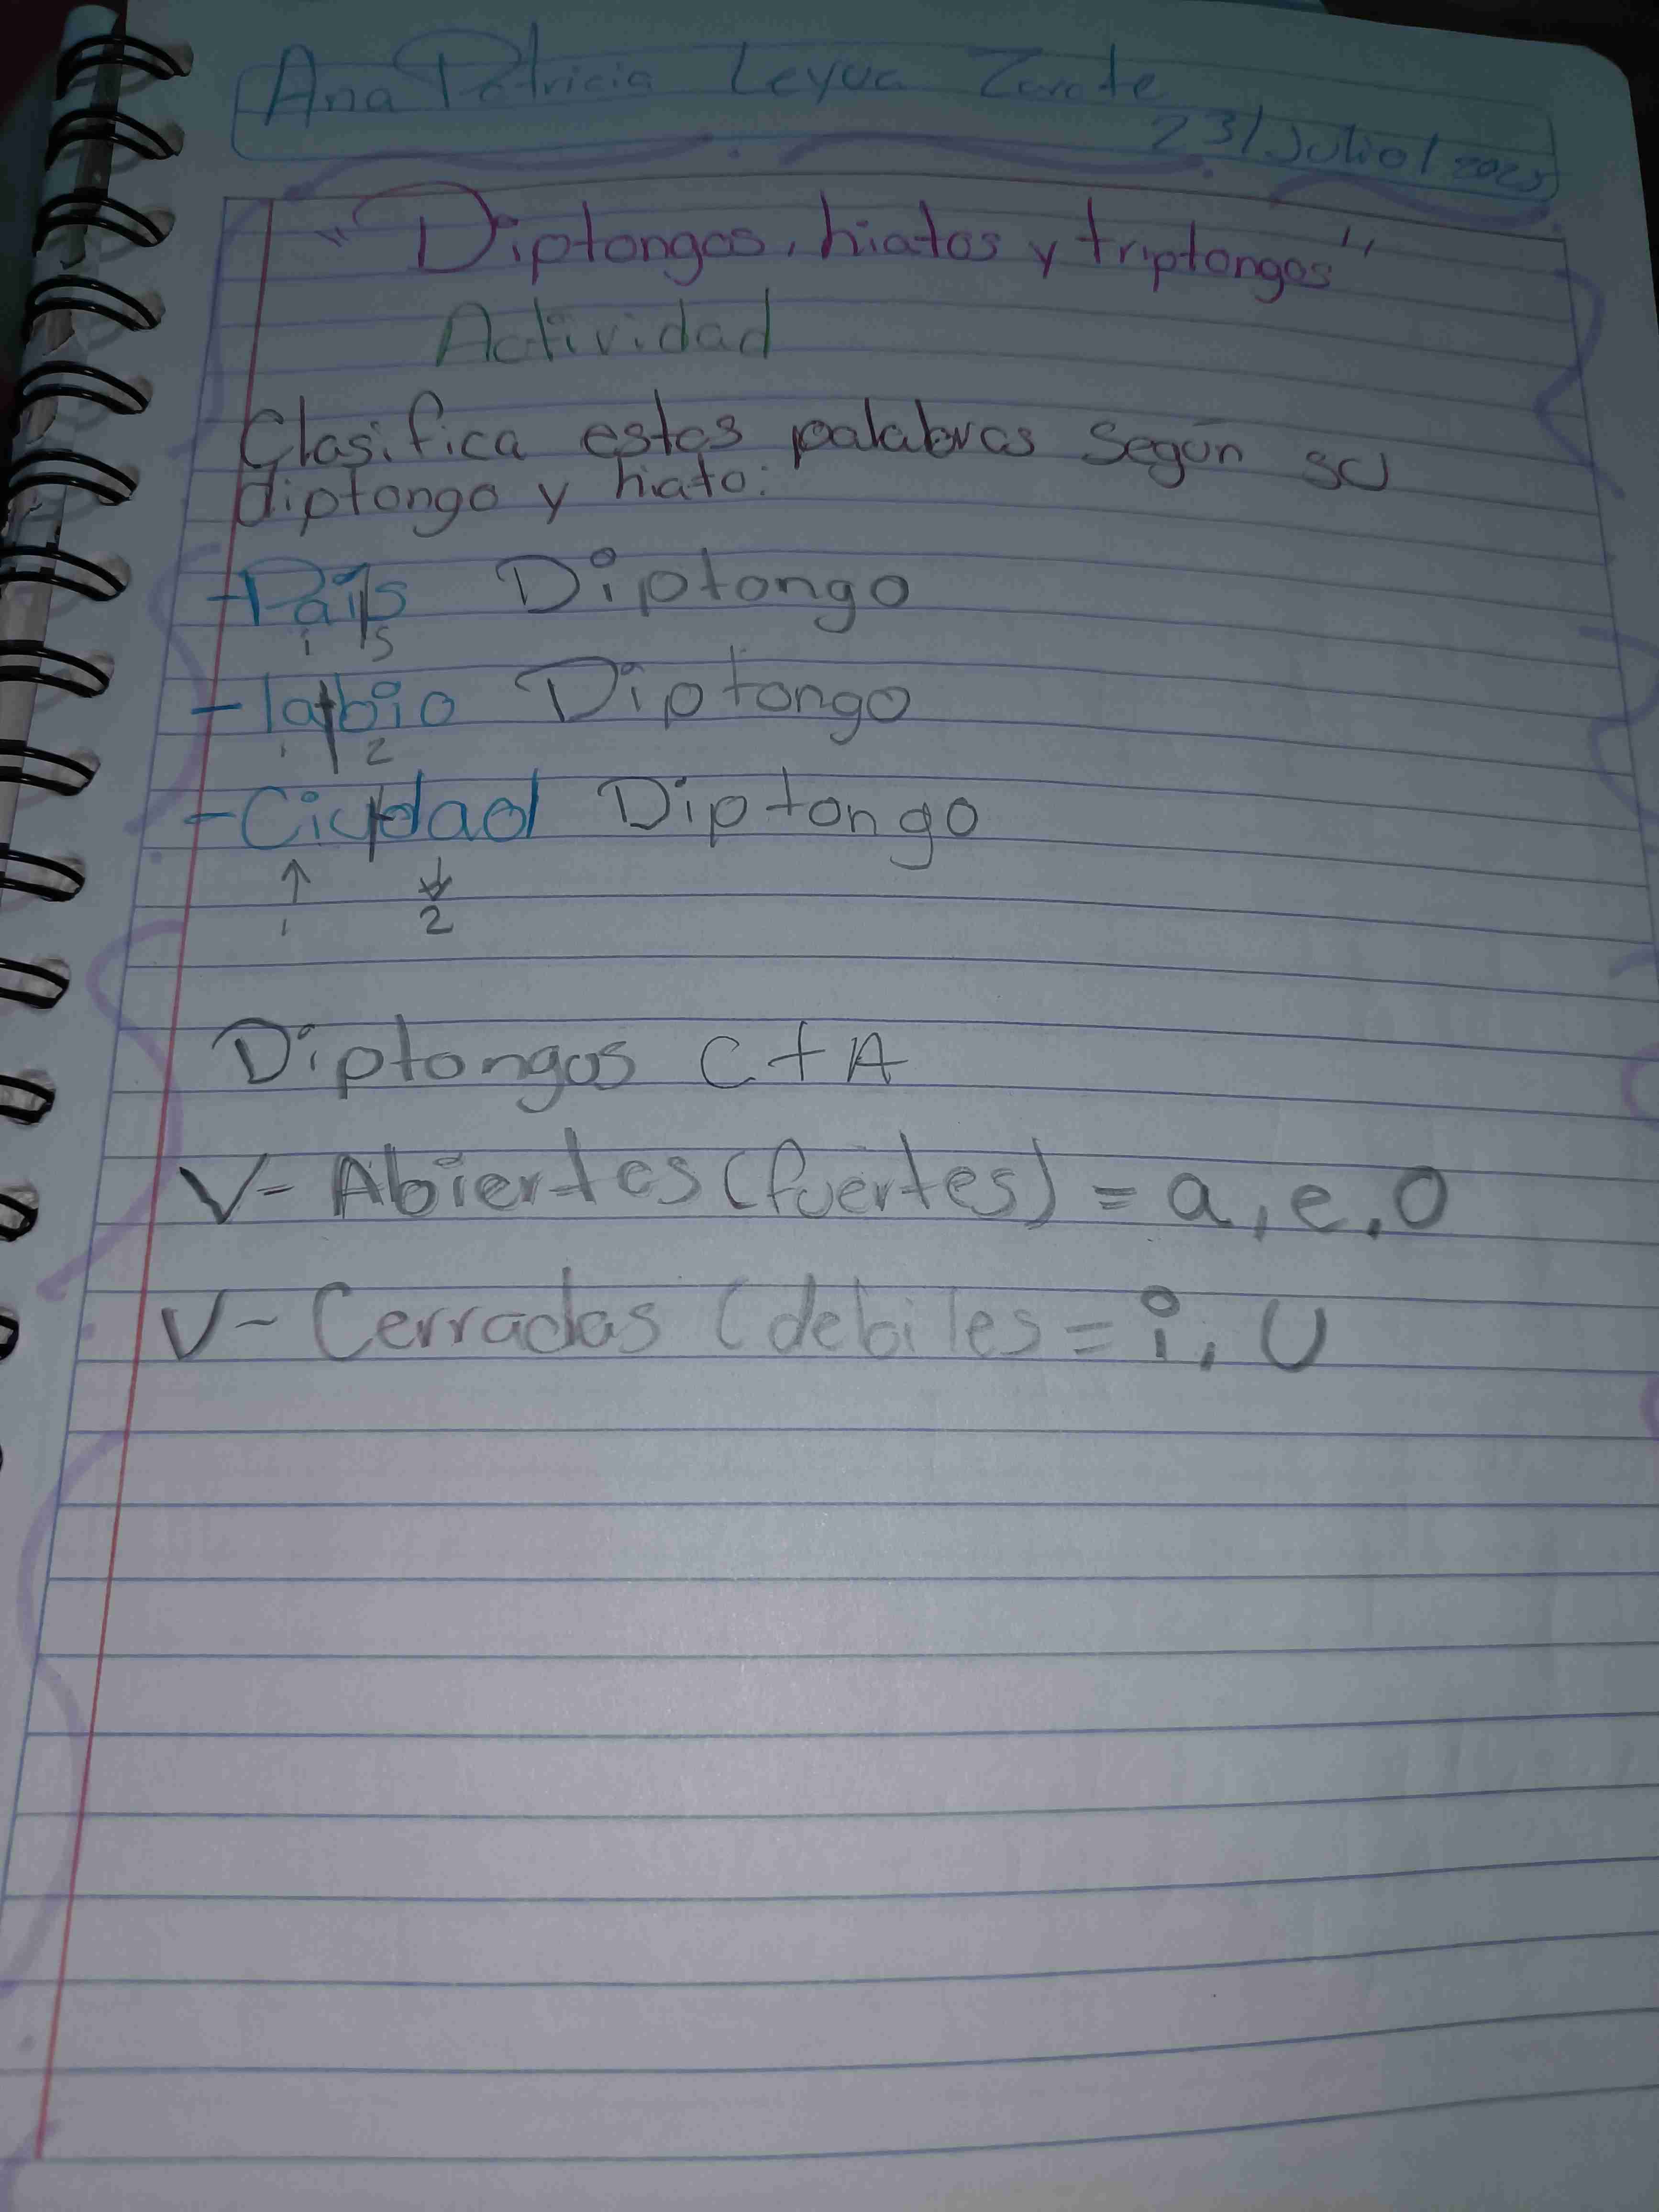 Ana Patricia Leyva Zarate
23/Julio/2025
"Diptongos, hiatos y triptongos"
Actividad
Clasifica estas palabras según su
diptongo y hiato:
-País Diptongo
1 S
-labio Diptongo
1 2
-Ciudad Diptongo
1 2
Diptongos C+A
V- Abiertas (fuertes) = a, e, o
V- Cerradas (debiles = i, U